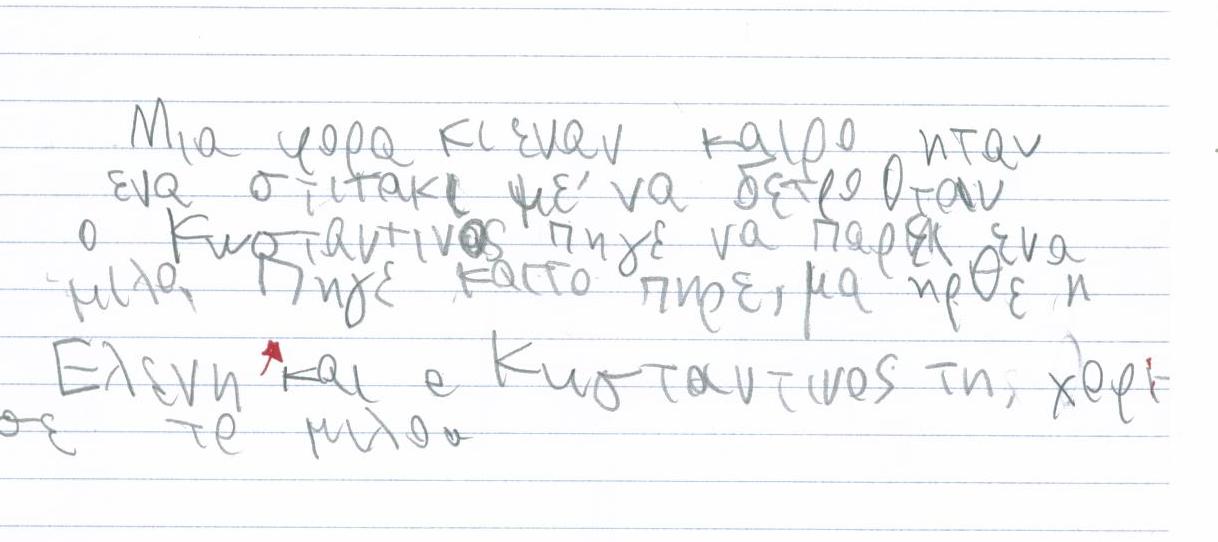 Μια φορα κι εναν καιρο ηταν
ενα σπιτακι με να δετρο Οταν
ο Κωσταντινος πηγε να παρει ενα
μιλο. Πηγε και το πηρε, μα ηρθε η
Ελενη και ο Κωσταντινος τη, χορι
σε το μιλο.